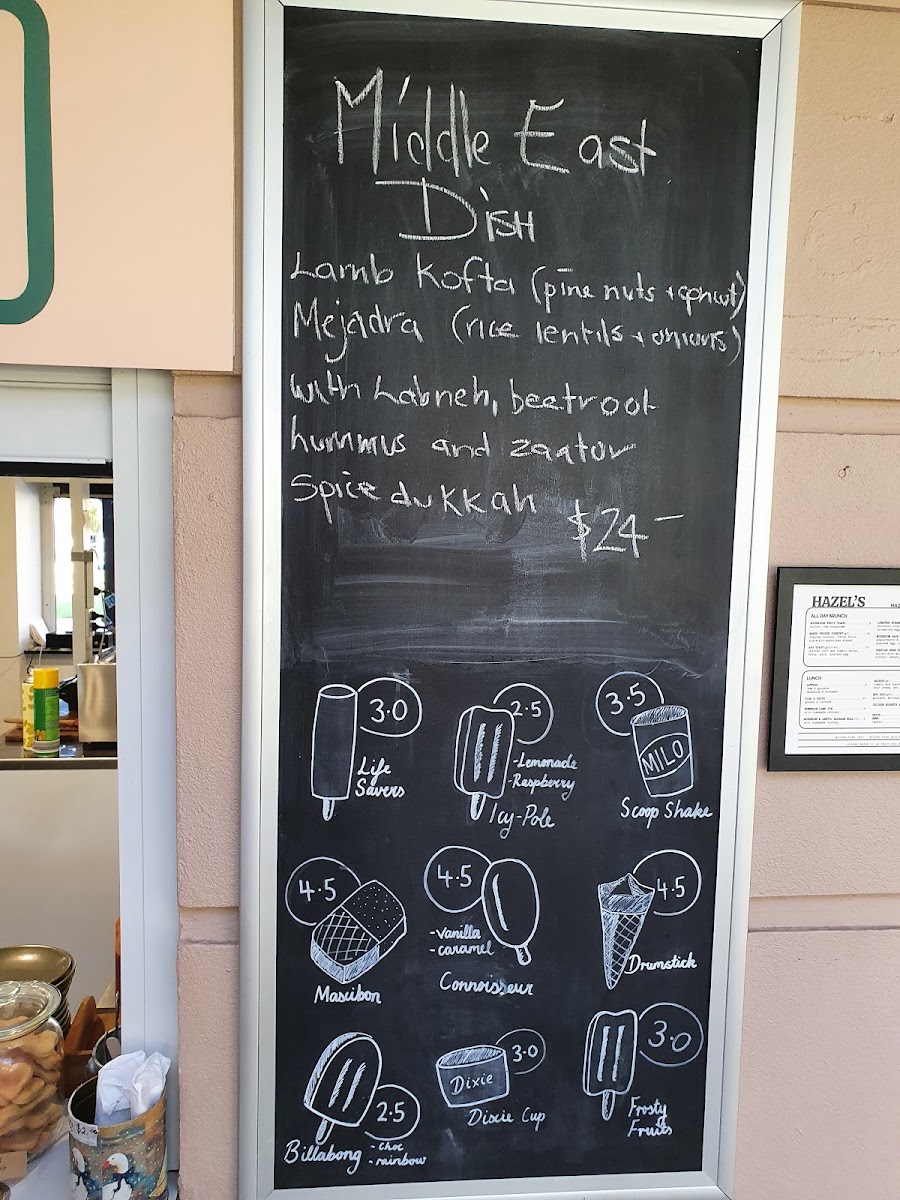 Middle East
Dish
Lamb Kofta (pine nuts +
Mejadra (rice lentils + onions)
with Labneh, beetroot
hummus and zaatar
Spice dukkah
$24-
3.0
Life
Savers
2.5
-Lemonade
-Raspberry
Icy-Pole
3.5
MILO
Scoop Shake
4.5
Maxibon
4.5
-Vanilla
-caramel
Connoisseur
4.5
Drumstick
2.5
Billabong
-choc
-rainbow
3.0
Dixie
Dixie Cup
3.0
Frosty
Fruits
HAZEL'S
ALL DAY BRUNCH
LUNCH